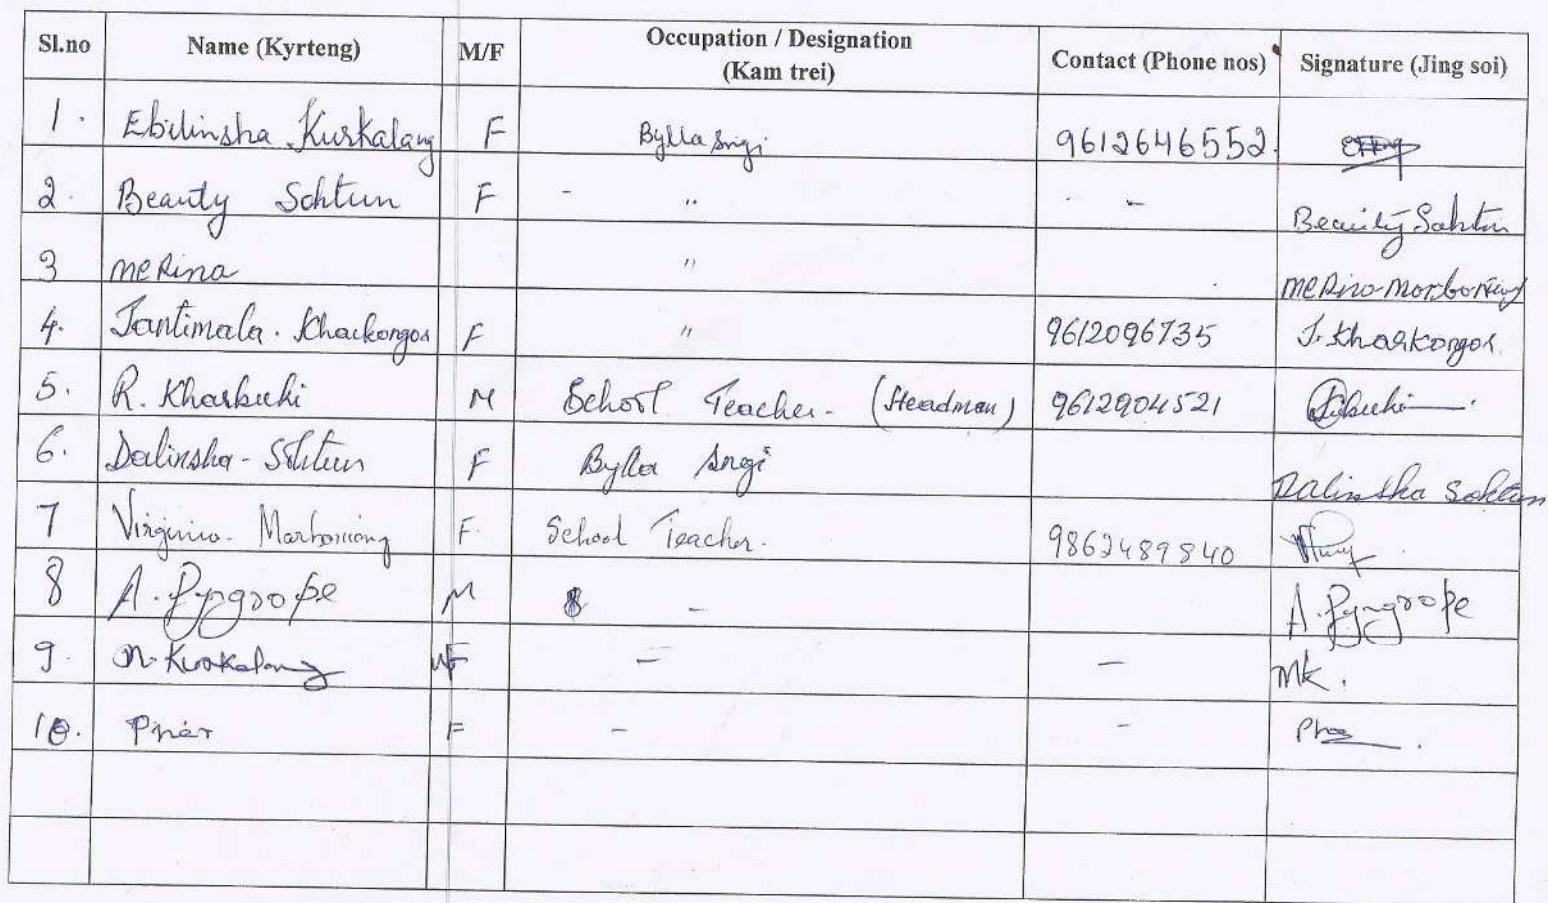 Sl.no Name (Kyrteng) M/F Occupation / Designation (Kam trei) Contact (Phone nos) Signature (Jing soi)
1. Ebilinsha Kurkalang F Bylla sngi 9612646552.
2. Beauty Sohtun F - " - - Beauty Sohtun
3 merina " merina marboniang
4. Jantimala. Kharkongor F " 9612096735 J. Kharkongor.
5. R. Kharbuki M School Teacher- (Headman) 9612904521
6. Dalinsha - Sohtun F Bylla Sngi Dalinsha Sohtun
7 Virginia- Marboniang F. School Teacher. 9862489840
8 A. Pyngrope M - A. Pyngrope
9. M. Kurkalang F - - MK.
10. F - -